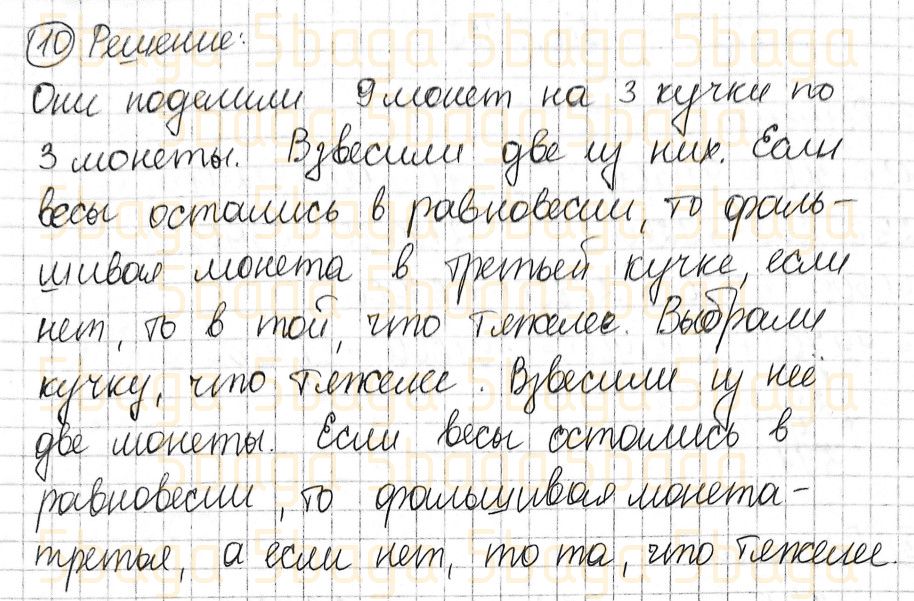 10 Решение:
Они поделили 9 монет на 3 кучки по
3 монеты. Взвесили две из них. Если
весы остались в равновесии, то фаль-
шивая монета в третьей кучке, если
нет, то в той, что тяжелее. Выбрали
кучку, что тяжелее. Взвесили из неё
две монеты. Если весы остались в
равновесии, то фальшивая монета-
третья, а если нет, то та, что тяжелее.